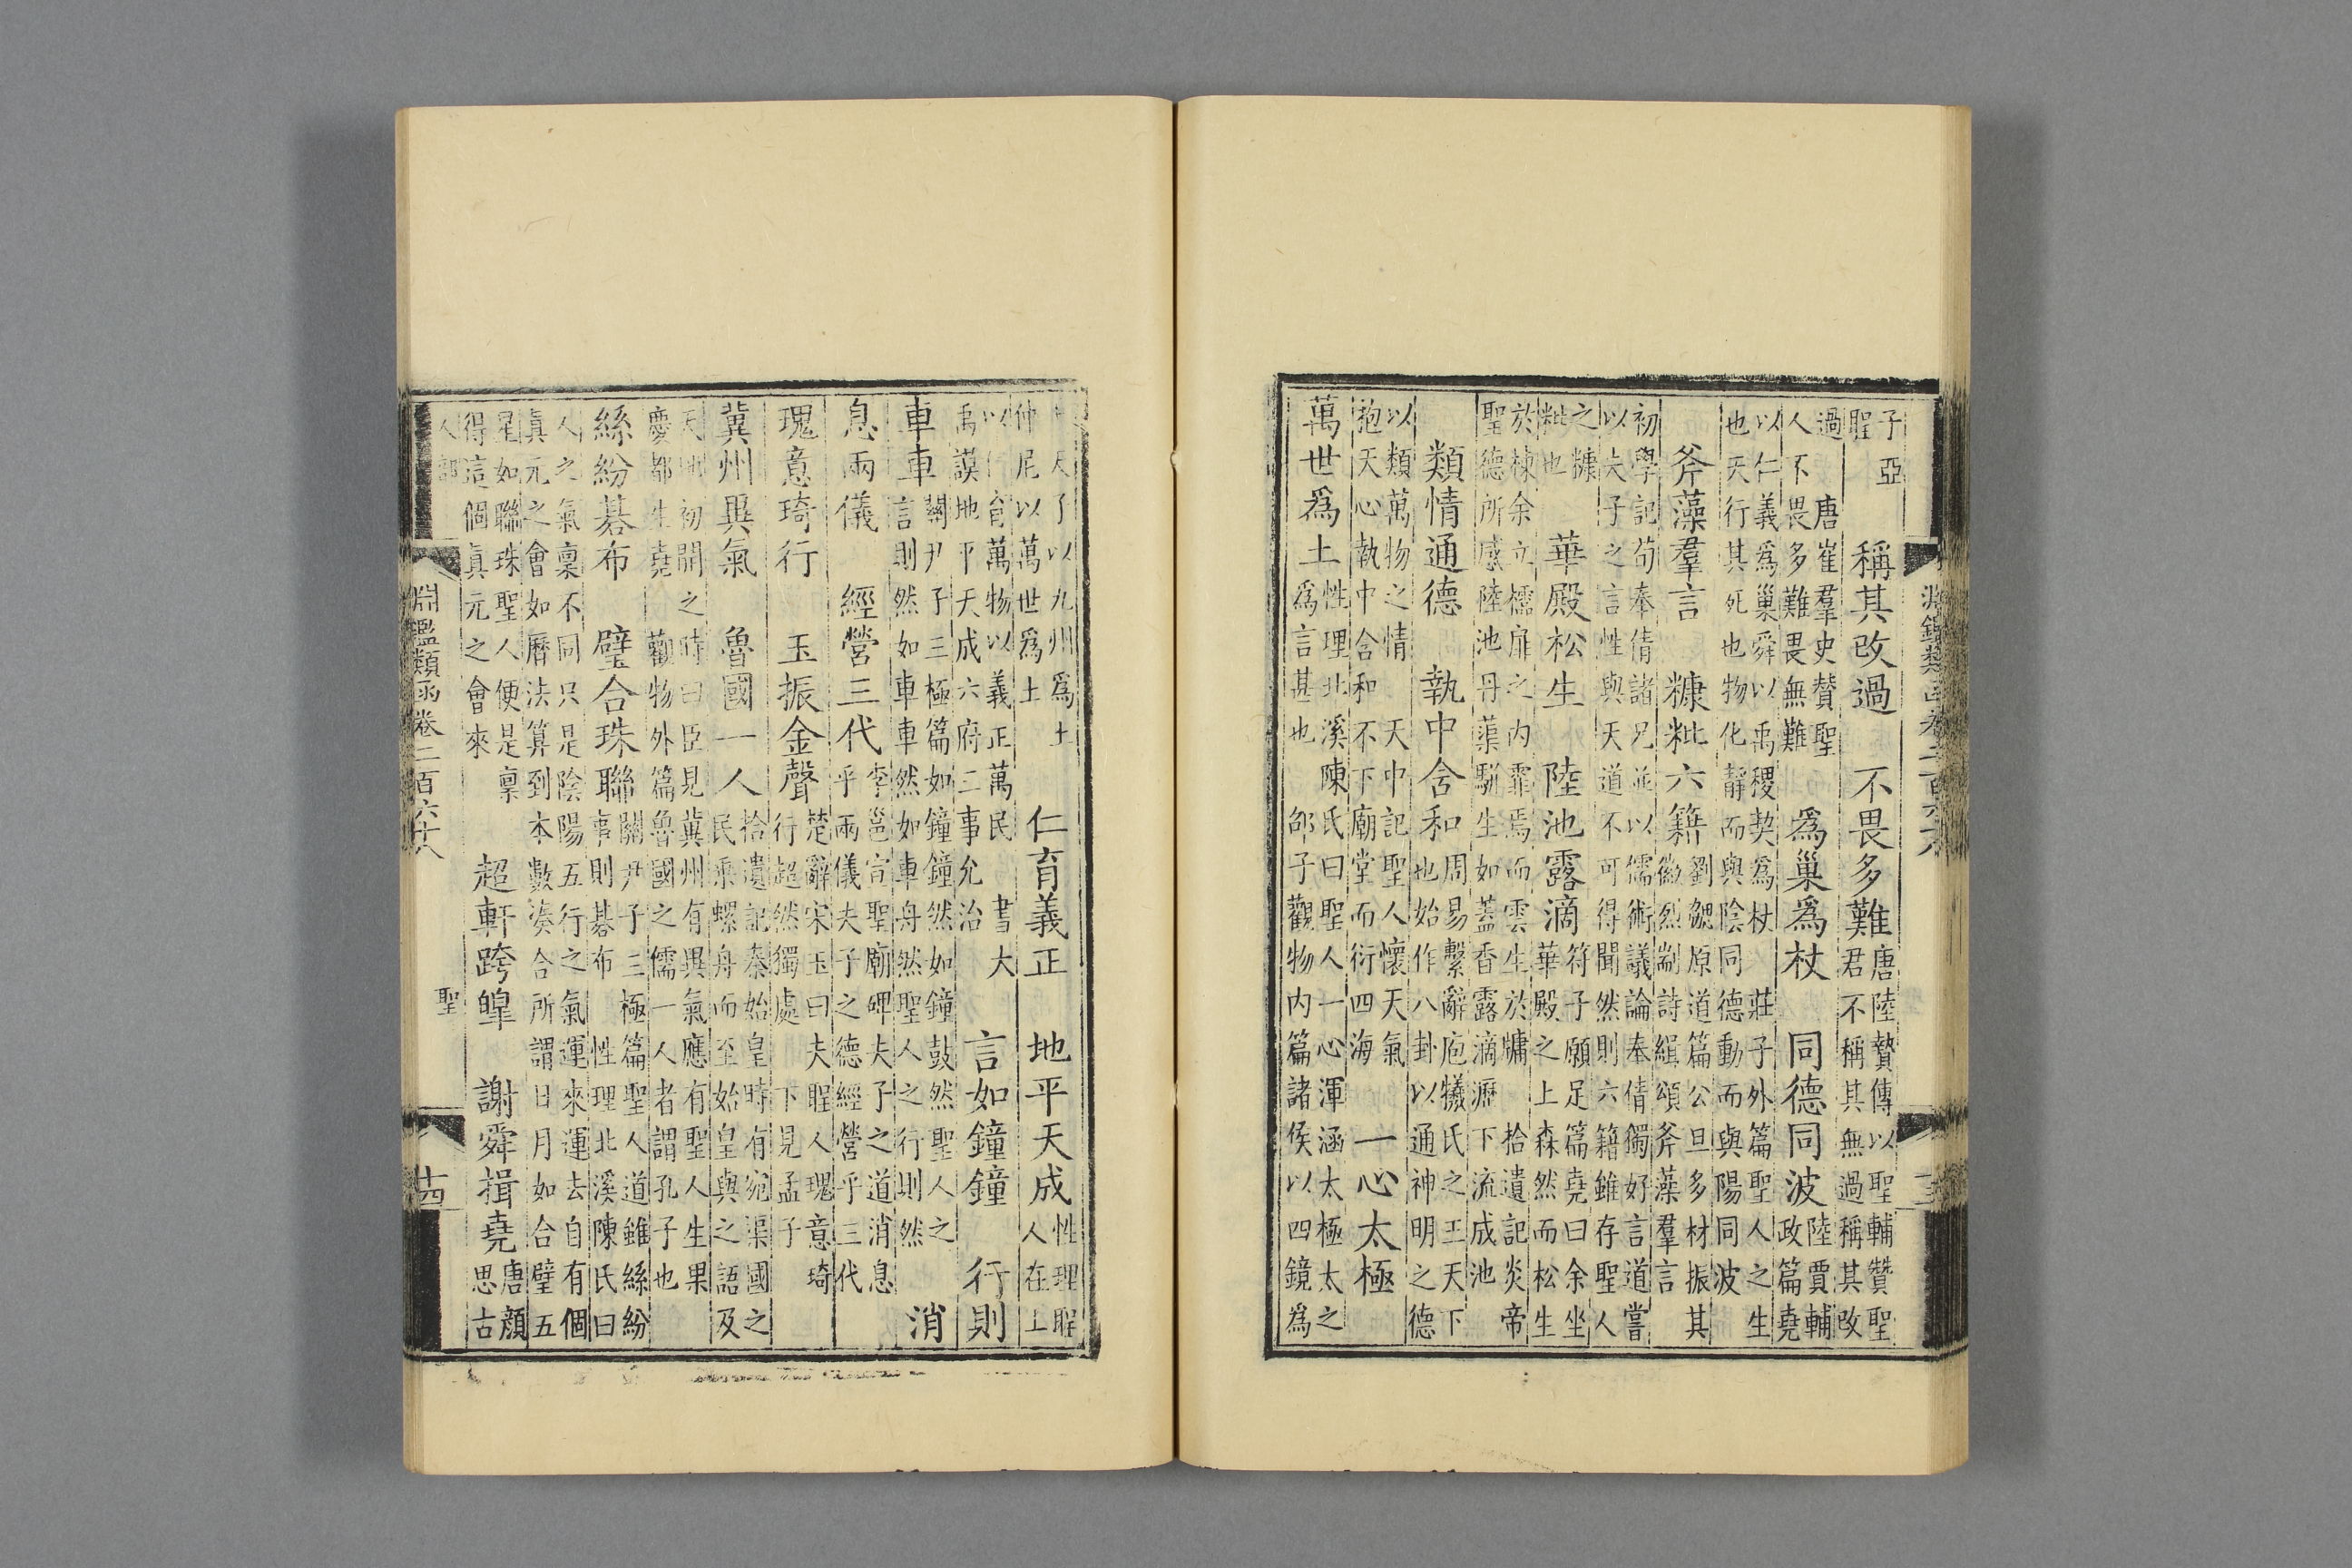 淵鑑類函卷二百六十八
子亞
聖
稱其改過　不畏多難
唐陸贄傳以聖輔贊聖
君不稱其無過稱其改
過　唐崔羣史贊聖
人不畏多難畏無難
爲巢爲杖　同德同波
陸賈輔
政篇堯
以仁義爲巢舜以禹稷契爲杖　莊子外篇聖人之生
也天行其死也物化靜而與陰同德動而與陽同波
斧藻羣言　糠粃六籍
劉勰原道篇公旦多材振其
徽烈剬詩緝頌斧藻羣言
初學記荀奉倩諸兄並以儒術議論奉倩獨好言道嘗
以夫子之言性與天道不可得聞然則六籍雖存聖人
之糠
粃也
華殿松生　陸池露滴
符子願足篇堯曰余坐
華殿之上森然而松生
於棟余立欞扉之内霏焉而雲生於牗　拾遺記炎帝
聖德所感陸池丹蕖駢生如蓋香露滴瀝下流成池
類情通德　執中含和
周易繫辭庖犧氏之王天下
也始作八卦以通神明之德
以類萬物之情　天中記聖人懷天氣
抱天心執中含和不下廟堂而衍四海
一心太極
萬世爲土
性理北溪陳氏曰聖人一心渾涵太極太之
爲言甚也　邵子觀物内篇諸侯以四鏡爲
土天子以九州爲土
仲尼以萬世爲土
仁育義正　地平天成
性理聖
人在上
以仁育萬物以義正萬民　書大
禹謨地平天成六府三事允治
言如鐘鐘　行則
車車
關尹子三極篇如鐘鐘然如鐘鼓然聖人之
言則然如車車然如車舟然聖人之行則然
消
息兩儀　經營三代
李邕宣聖廟碑夫子之道消息
乎兩儀夫子之德經營乎三代
瑰意琦行　玉振金聲
楚辭宋玉曰夫聖人瑰意琦
行超然獨處　下見孟子
冀州異氣　魯國一人
拾遺記秦始皇時有宛渠國之
民乘螺舟而至始皇與之語及
天地初開之時曰臣見冀州有異氣應有聖人生果
慶都生堯　觀物外篇魯國之儒一人者謂孔子也
絲紛棊布　璧合珠聯
關尹子三極篇聖人道雖絲紛
事則棊布　性理北溪陳氏曰
人之氣稟不同只是陰陽五行之氣運來運去自有個
真元之會如曆法算到本數湊合所謂日月如合璧五
星如聯珠聖人便是稟
得這個真元之會來
超軒跨皥　謝舜揖堯
唐顏
思古
人部
淵鑑類函卷二百六十八　聖　十四